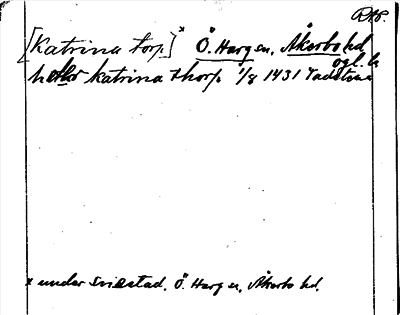 RAP.
[Katrina torp]* Ö. Harg sn, Åkerbo hd
ögl. b
heter katrina thorp 1/8 1431 Vadstena
* under Sviestad, Ö. Harg sn, Åkerbo hd.